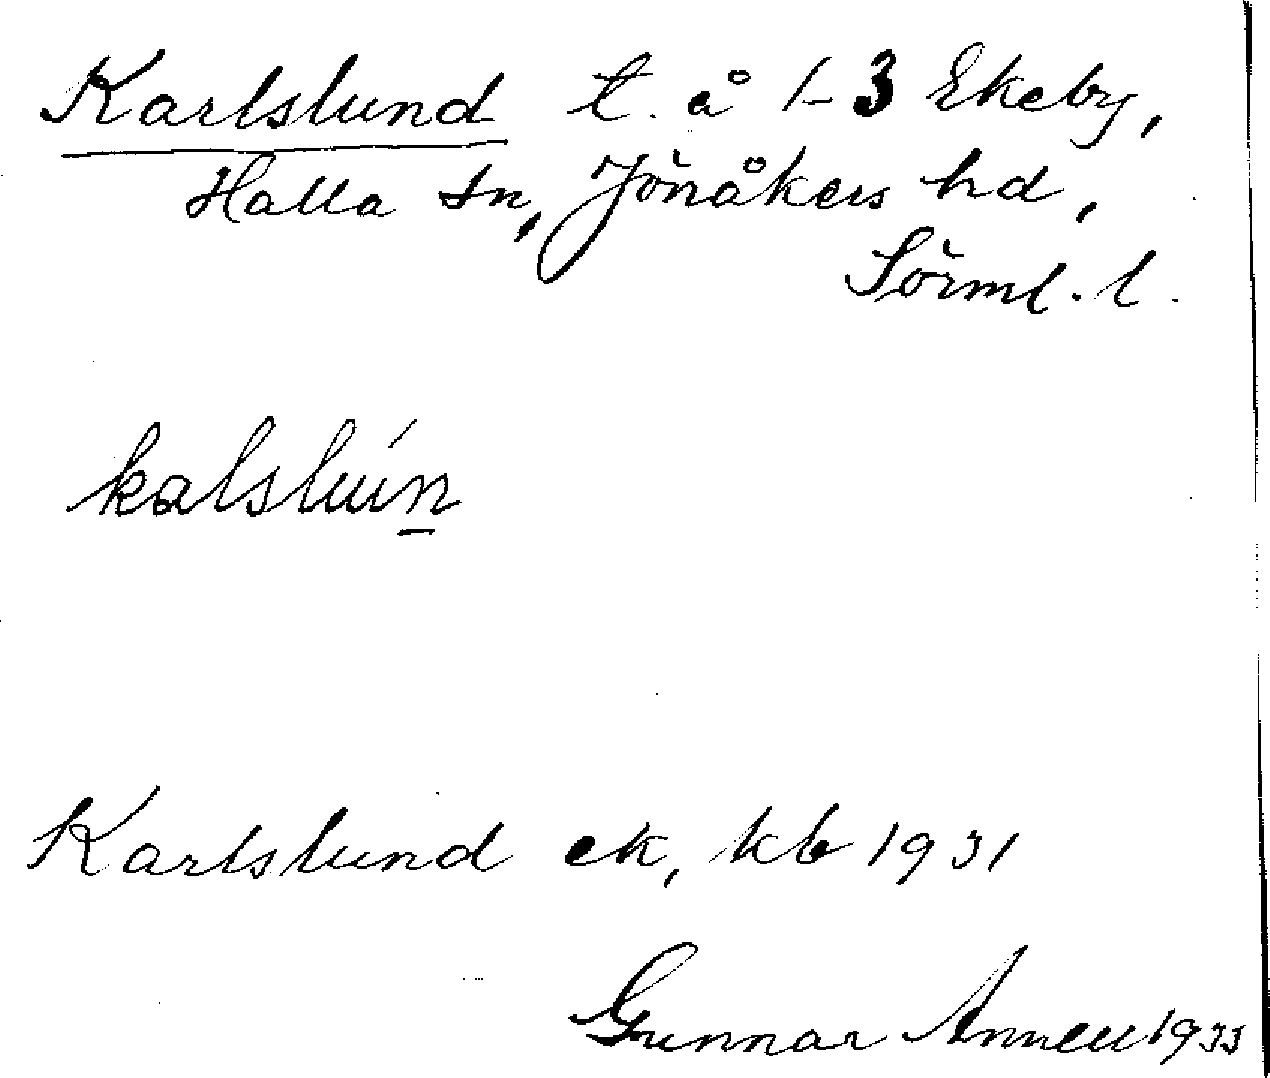 Karlslund t. å 1-3 Ekeby,
Halla sn, Jönåkers hd,
Sörml. l.
kalslún̲
Karlslund ek, kb 1931
Gunnar Annell 1933